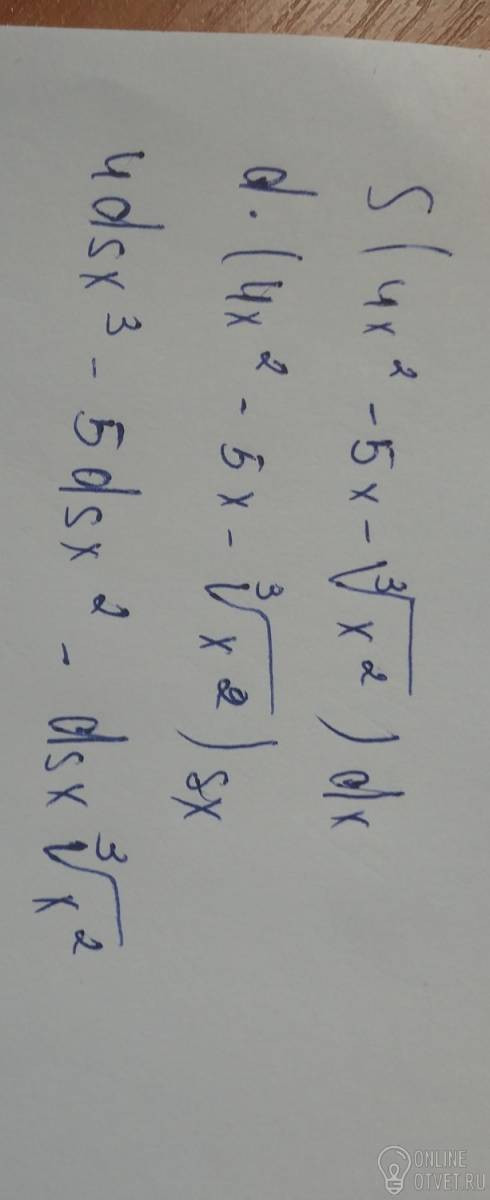 S(4x² - 5x - ∛x²)dx
d·(4x² - 5x - ∛x²)sx
4dsx³ - 5dsx² - dsx∛x²
ONLINE
OTVET.RU